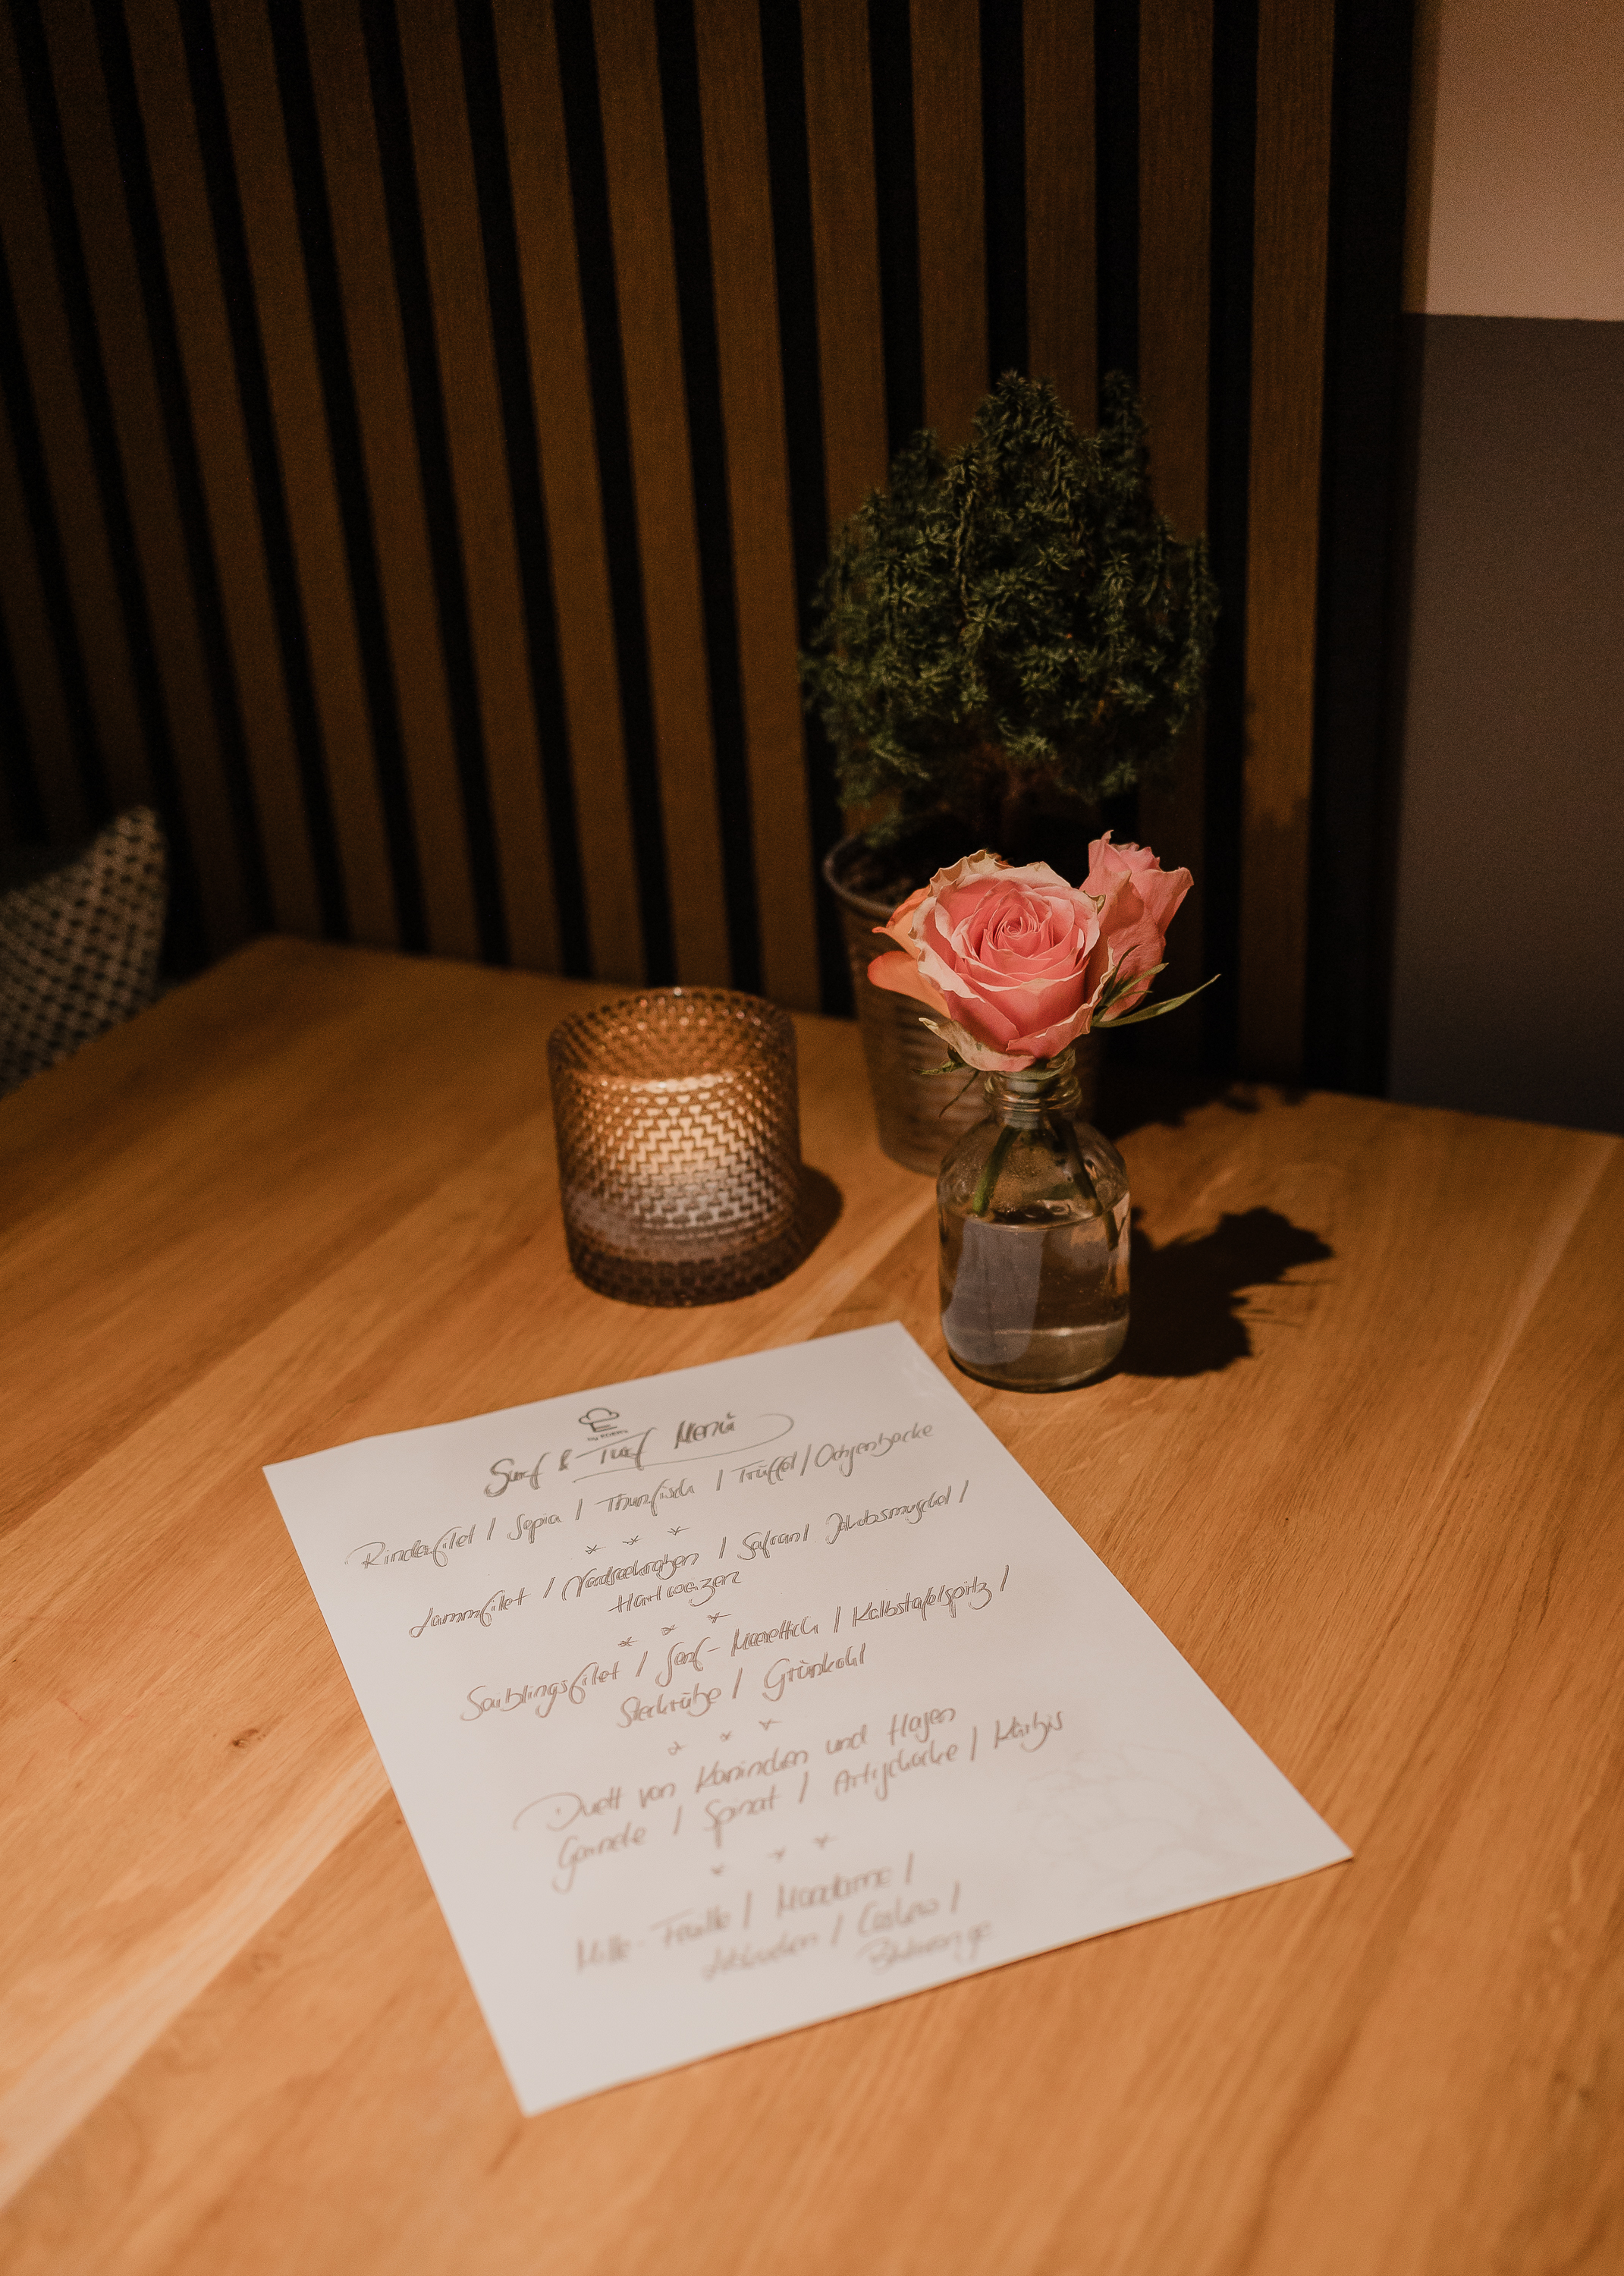 Surf & Turf Menü
Rinderfilet / Sepia / Thunfisch / Trüffel / Ochsenbacke
* * *
Lammfilet / Nordseekrabben / Safran / Jakobsmuschel /
Hartweizen
* * *
Saiblingsfilet / Senf-Meerettich / Kalbstafelspitz /
Steckrübe / Grünkohl
* * *
Duett von Kaninchen und Hasen
Garnele / Spinat / Artischocke / Kürbis
* * *
Mille-Feuille / Macadamia /
/ Cashew /
Blutorange